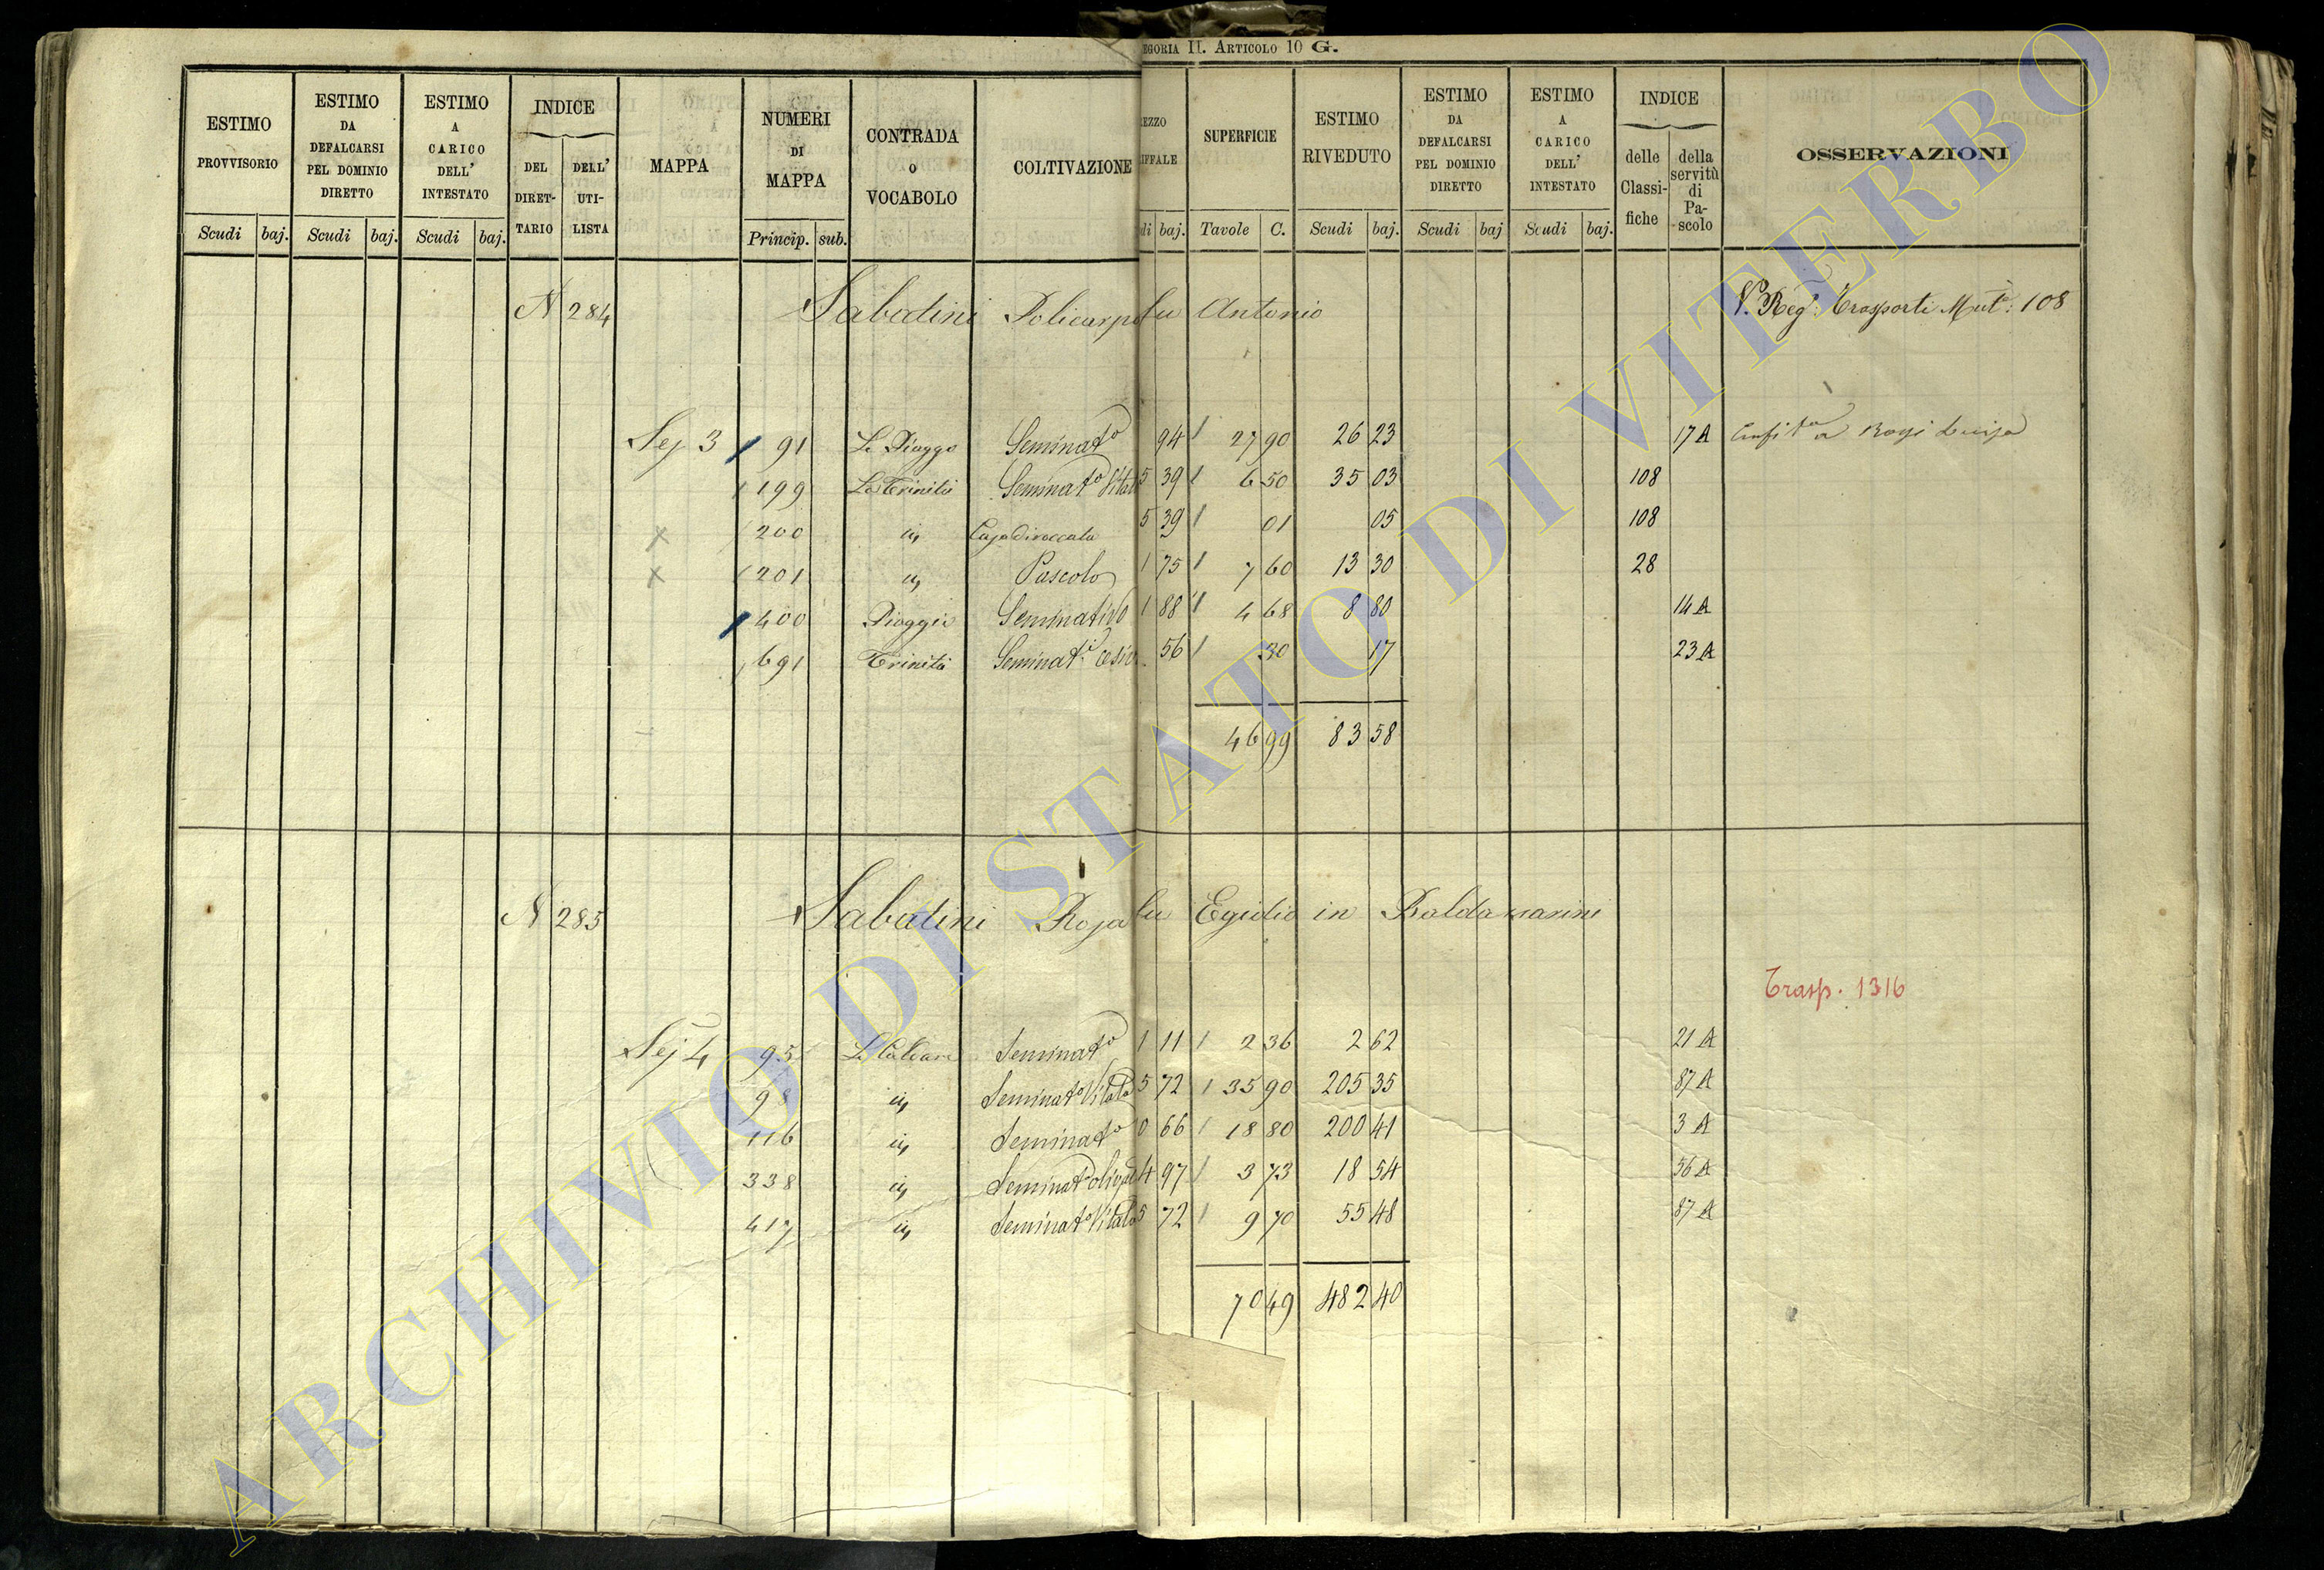 EGORIA II. ARTICOLO 10 G.
ESTIMO PROVVISORIO
ESTIMO DA DEFALCARSI PEL DOMINIO DIRETTO
ESTIMO A CARICO DELL' INTESTATO
INDICE
DEL DIRETTARIO
DELL' UTILISTA
MAPPA
NUMERI DI MAPPA
CONTRADA O VOCABOLO
COLTIVAZIONE
EZZO IFFALE
SUPERFICIE
ESTIMO RIVEDUTO
ESTIMO DA DEFALCARSI PEL DOMINIO DIRETTO
ESTIMO A CARICO DELL' INTESTATO
INDICE
delle Classifiche
della servitù di Pascolo
OSSERVAZIONI
Scudi baj. Scudi baj. Scudi baj. Princip. sub. di baj. Tavole C. Scudi baj. Scudi baj Scudi baj.
N 284 Sabatini Policarpo fu Antonio V. Reg. Trasporti Mut. 108
Sez 3 91 Le Piagge Seminato 94 27 90 26 23 17 A Enfita a Luisa
199 La Trinità Seminato Vitato 5 39 6 50 35 03 108
200 id Casa diroccata 5 39 01 05 108
201 id Pascolo 1 75 7 60 13 30 28
400 Piaggie Seminativo 1 88 4 68 8 80 14 A
691 Trinità Seminato 56 30 17 23 A
46 99 83 58
N 285 Sabatini Rosa fu Egidio in Baldamarini
Trasp. 1316
Sez 4 95 Seminato 1 11 2 36 2 62 21 A
98 id Seminato Vitato 5 72 35 90 205 35 87 A
116 id Seminato 0 66 18 80 200 41 3 A
338 id Seminato 4 97 3 73 18 54 56 A
417 id Seminato Vitato 5 72 9 70 55 48 87 A
70 49 482 40
ARCHIVIO DI STATO DI VITERBO